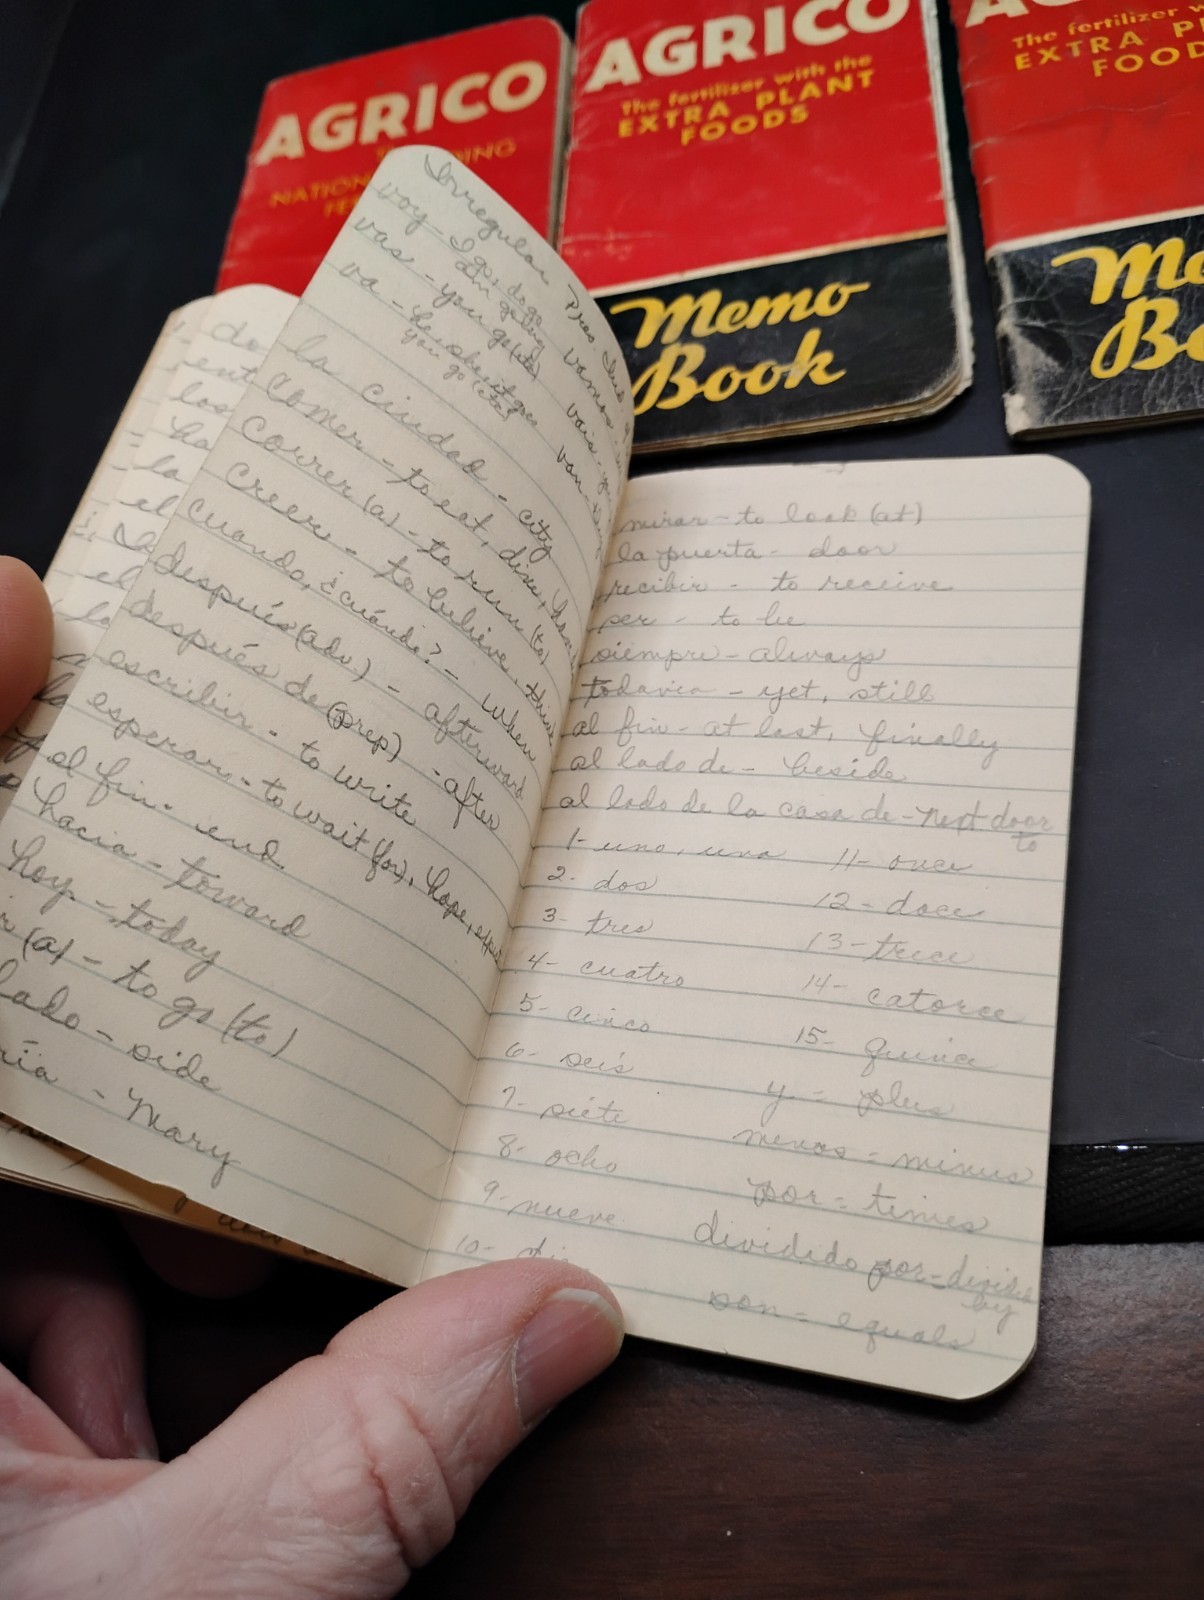 AGRICO
NATION
AGRICO
The fertilizer with the
EXTRA PLANT
FOODS
Memo
Book
The fertilizer
EXTRA
FOOD
Irregular Pres. Ind
voy - I go, do go
am going
vas - you go (etc)
va - he, she, it goes
you go (etc)
vamos
vais
van
la ciudad - city
comer - to eat, dine,
correr (a) - to run (to)
creer - to believe, think
cuando, ¿cuándo? - when
después (adv) - afterward
después de (prep) - after
escribir - to write
esperar - to wait (for), hope,
el fin - end
hacia - toward
hoy - today
(a) - to go (to)
lado - side
ría - Mary
mirar - to look (at)
la puerta - door
recibir - to receive
ser - to be
siempre - always
todavia - yet, still
al fin - at last, finally
al lado de - beside
al lado de la casa de - next door
to
1- uno, una 11- once
2- dos 12- doce
3- tres 13- trece
4- cuatro 14- catorce
5- cinco 15- quince
6- seis y = plus
7- siete menos = minus
8- ocho por = times
9- nueve dividido por = divided
by
10- son = equals